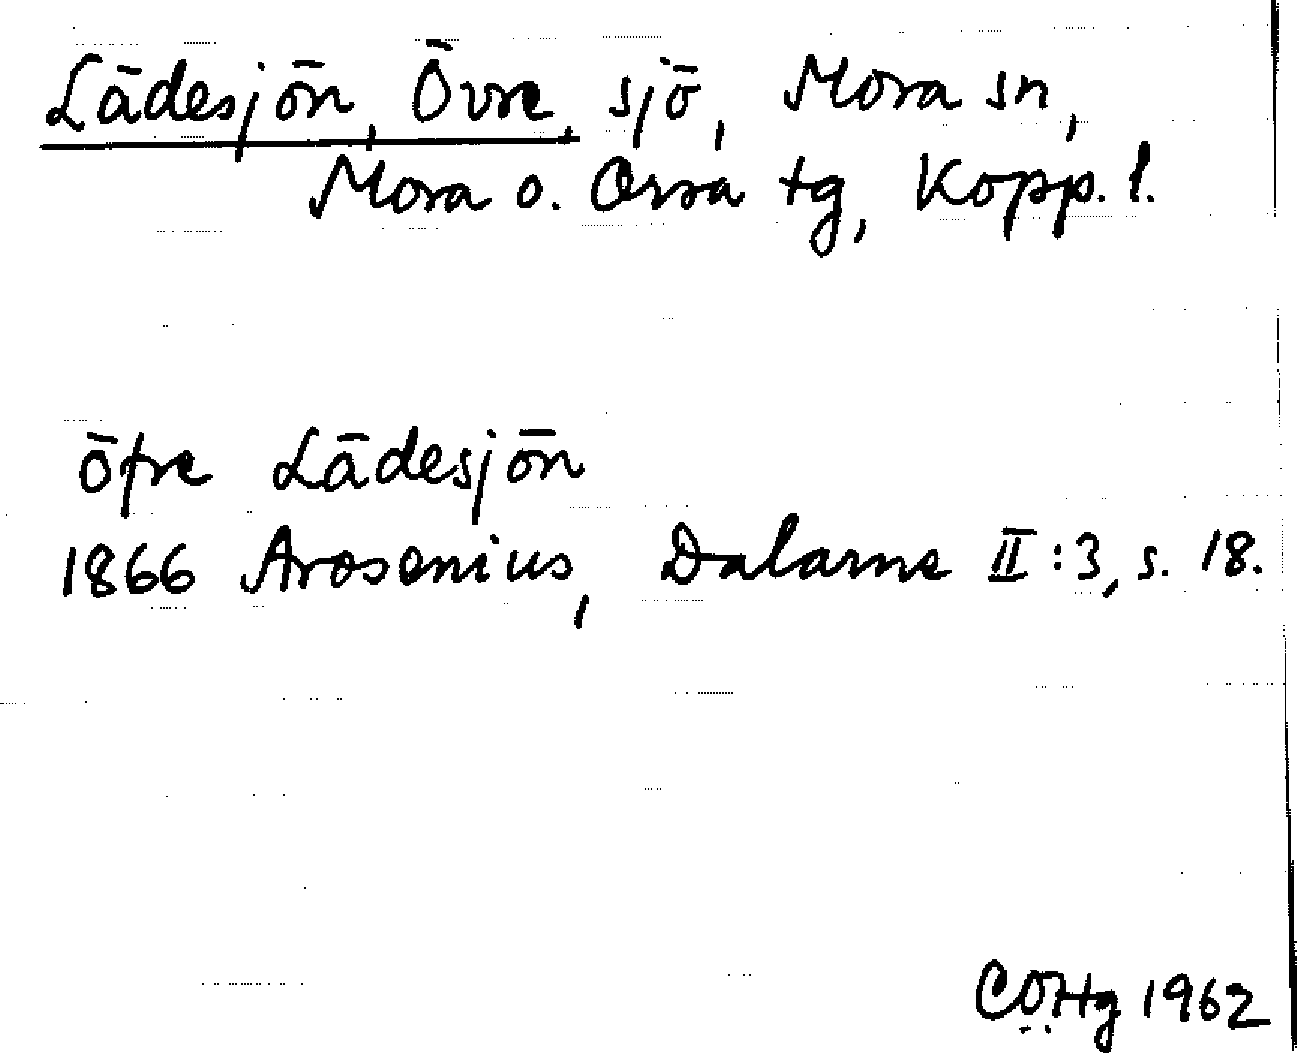 Lädesjön, Övre, sjö, Mora sn,
Mora o. Orsa tg, Kopp. l.
öfre Lädesjön
1866 Arosenius, Dalarne II:3, s. 18.
CÖHg 1962